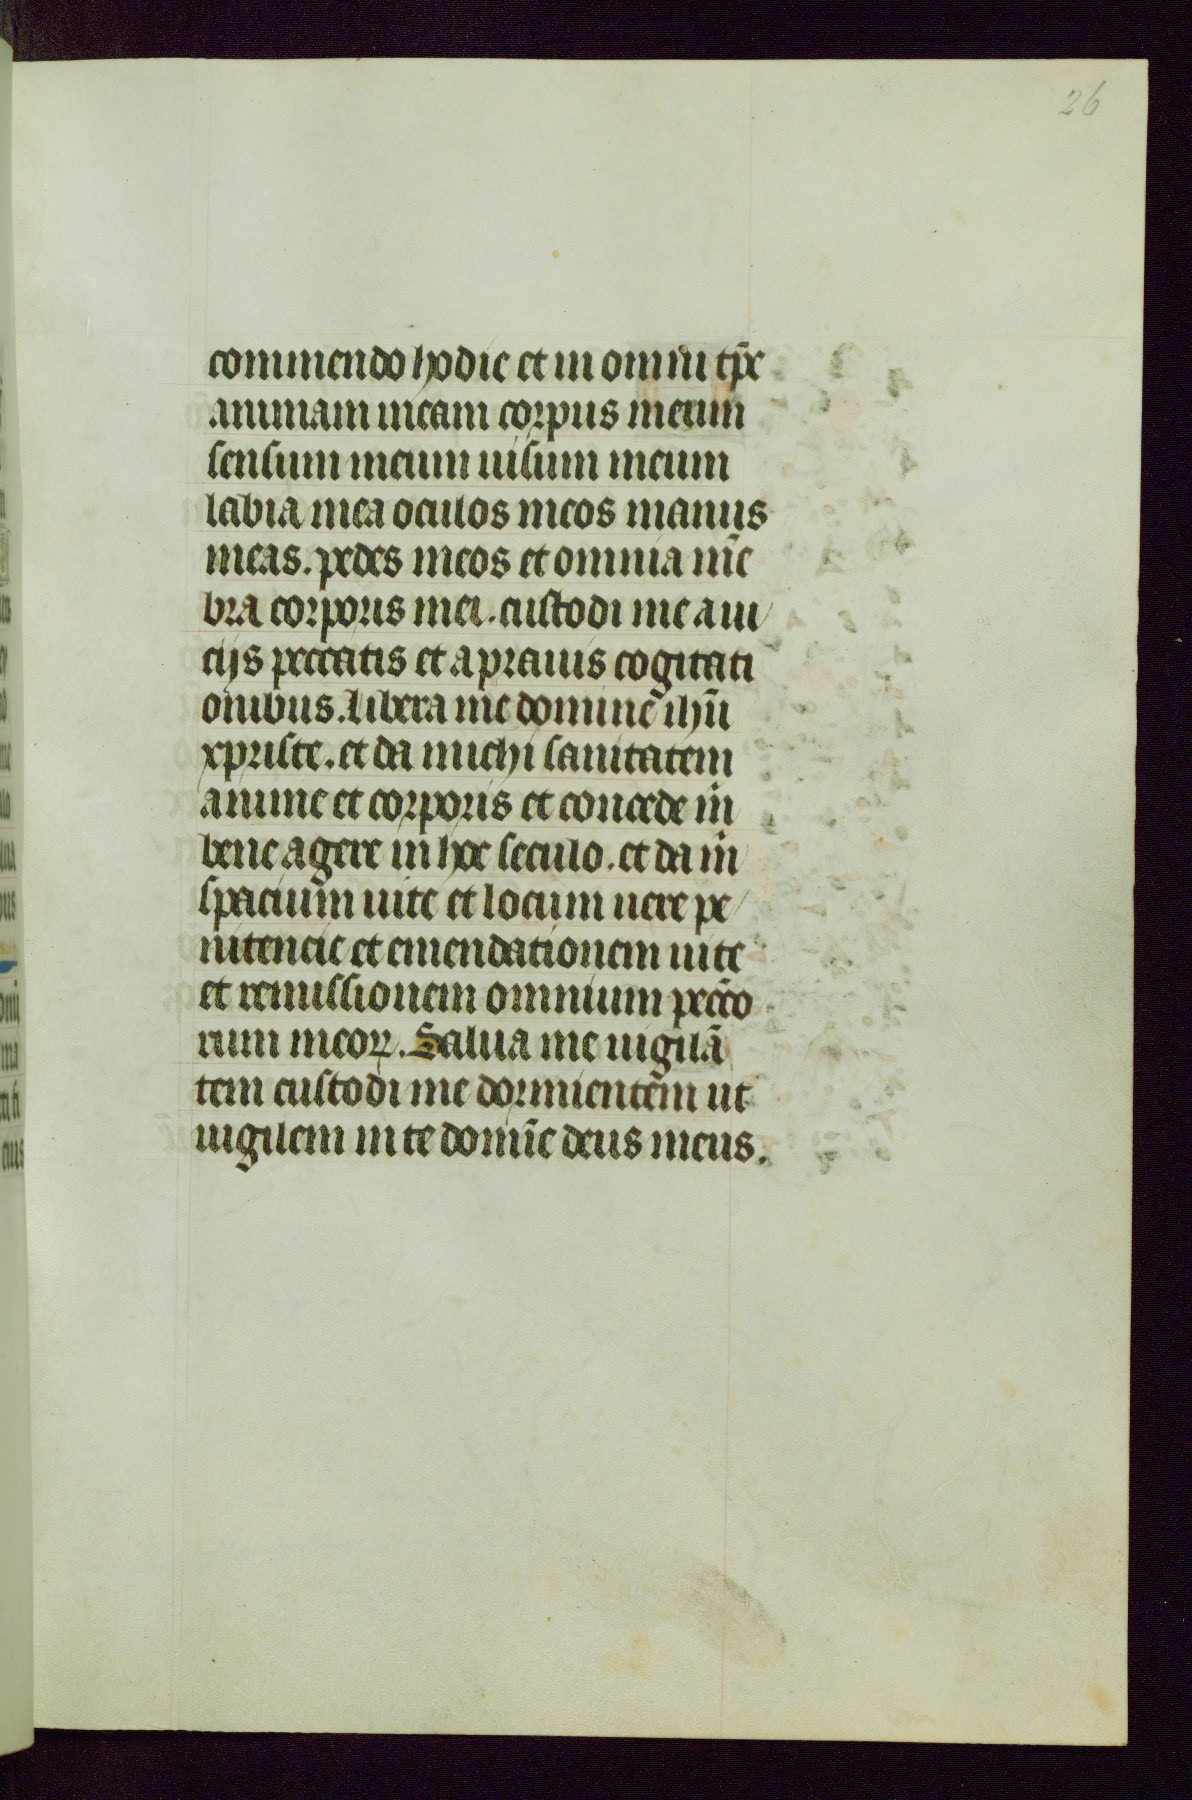 26
commendo hodie et in omni tp̄r
animam meam corpus meum
sensum meum uisum meum
labia mea oculos meos manus
meas. pedes meos et omnia mē
bra corporis mei. custodi me a ui
cijs peccatis et a prauis cogitati
onibus. libera me domine ihū
xpriste. et da michi sanitatem
anime et corporis et concede m̄
bene agere in hoc seculo. et da m̄
spacium uite et locum uere pe
nitencie et emendationem uite
et remissionem omnium pccō
rum meoꝝ. Salua me uigilā
tem custodi me dormientem ut
uigilem in te domīe deus meus.